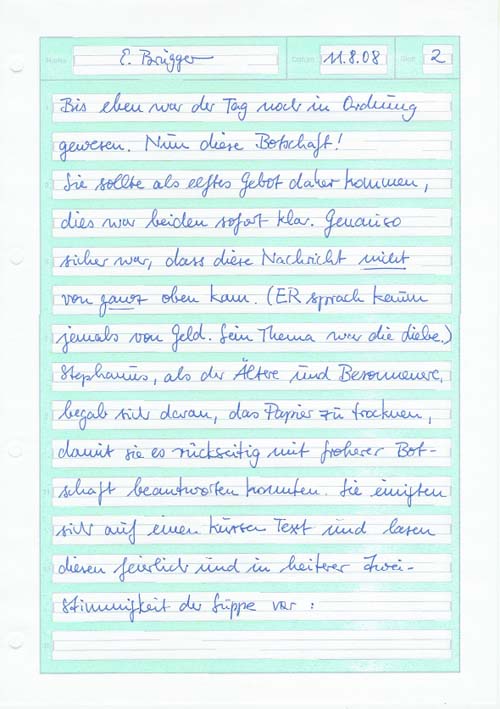 Name E. Brügger Datum 11.8.08 Blatt 2
Bis eben war der Tag noch in Ordnung
gewesen. Nun diese Botschaft!
Sie sollte als elftes Gebot daher kommen,
dies war beiden sofort klar. Genauso
sicher war, dass diese Nachricht nicht
von ganz oben kam. (ER sprach kaum
jemals von Geld. Sein Thema war die Liebe.)
Stephanus, als der Ältere und Besonnenere,
begab sich daran, das Papier zu trocknen,
damit sie es rückseitig mit froherer Bot-
schaft beantworten konnten. Sie einigten
sich auf einen kurzen Text und lasen
diesen feierlich und in heiterer Zwei-
stimmigkeit der Suppe vor: